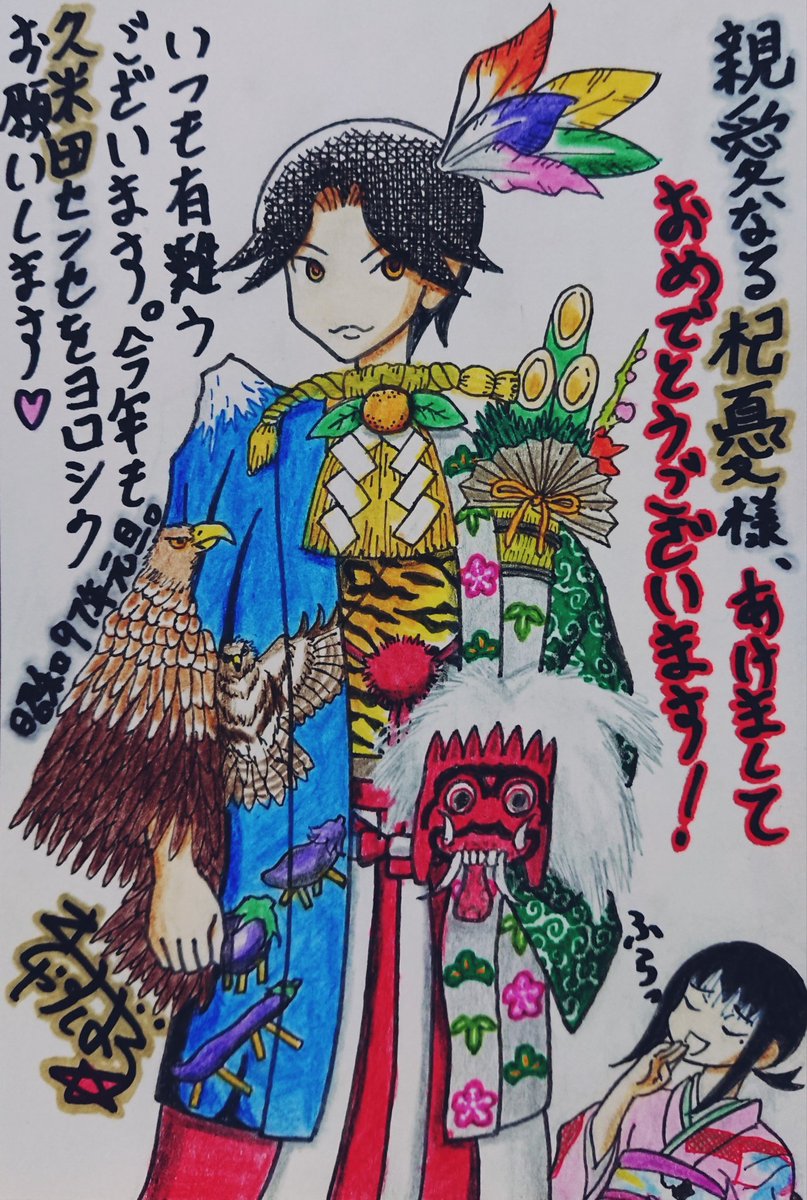 親愛なる杞憂様、あけまして
おめでとうございます!
いつも有難う
ございます。今年も
久米田センセをヨロシク
お願いします♡
昭和97年元旦。
ふらっ